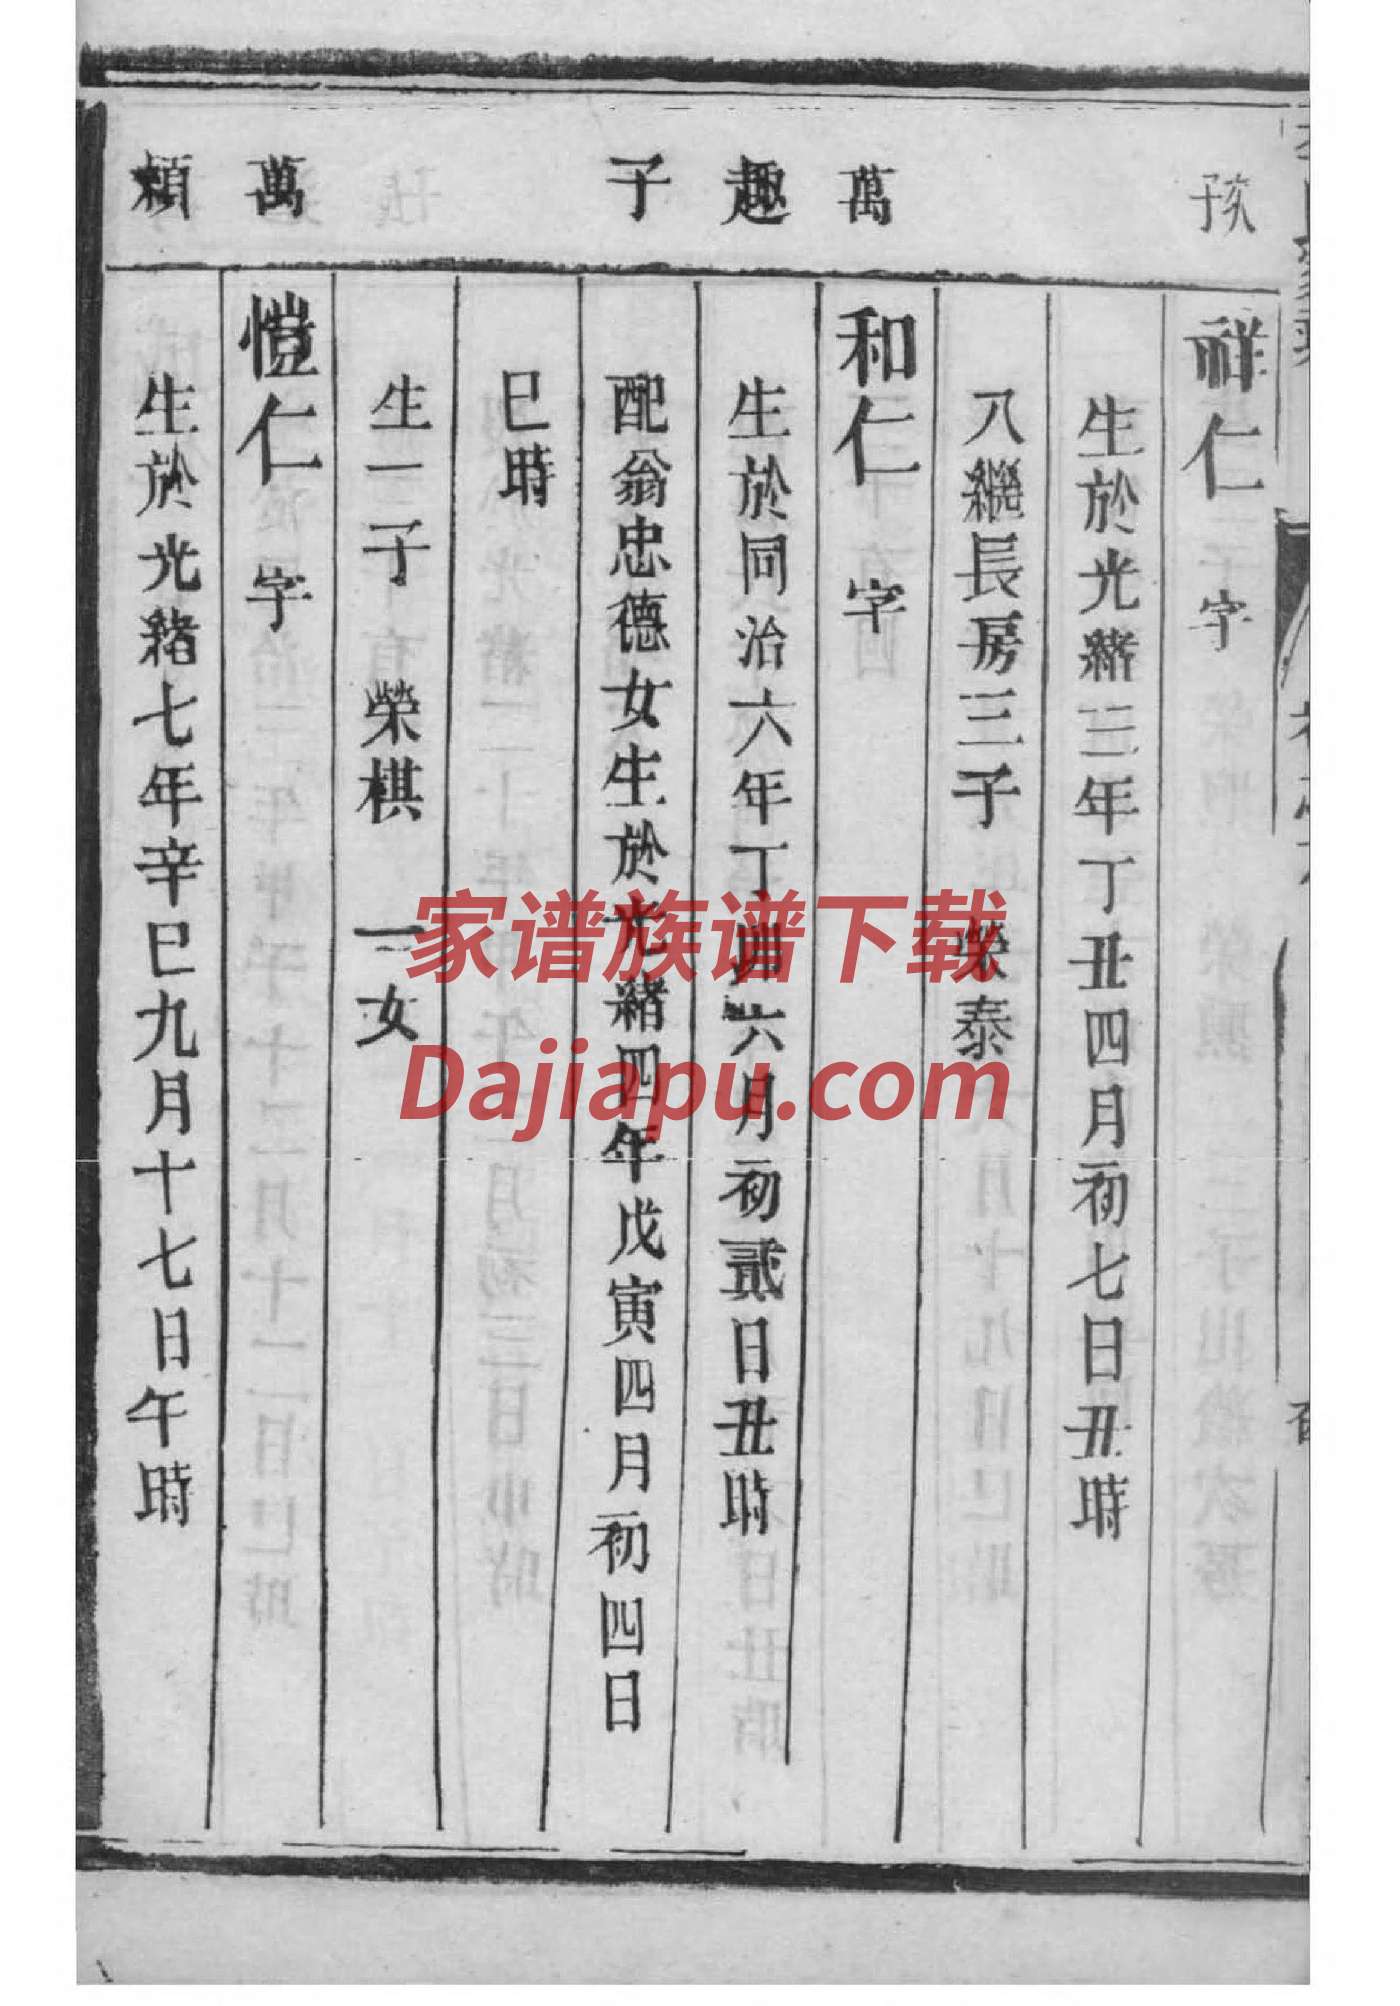 祥仁字
生於光緒三年丁丑四月初七日丑時
入繼長房三子 榮泰
萬
和仁字
趣
生於同治六年丁卯六月初貳日丑時
子
配翁忠德女生於光緒四年戊寅四月初四日
巳時
生一子 榮棋 一女
萬
愷仁字
頼
生於光緒七年辛巳九月十七日午時
家谱族谱下载
Dajiapu.com